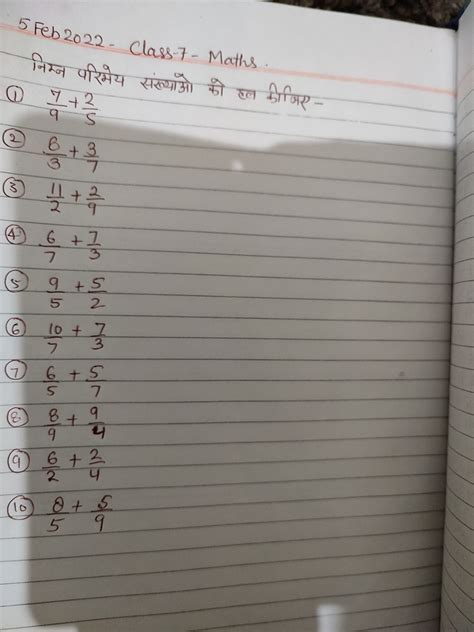 5 Feb 2022 - Class-7 - Maths.
निम्न परिमेय संख्याओं को हल कीजिए -
① 7/9 + 2/5
② 8/3 + 3/7
③ 11/2 + 2/9
④ 6/7 + 7/3
⑤ 9/5 + 5/2
⑥ 10/7 + 7/3
⑦ 6/5 + 5/7
⑧ 8/9 + 9/4
⑨ 6/2 + 2/4
⑩ 8/5 + 5/9